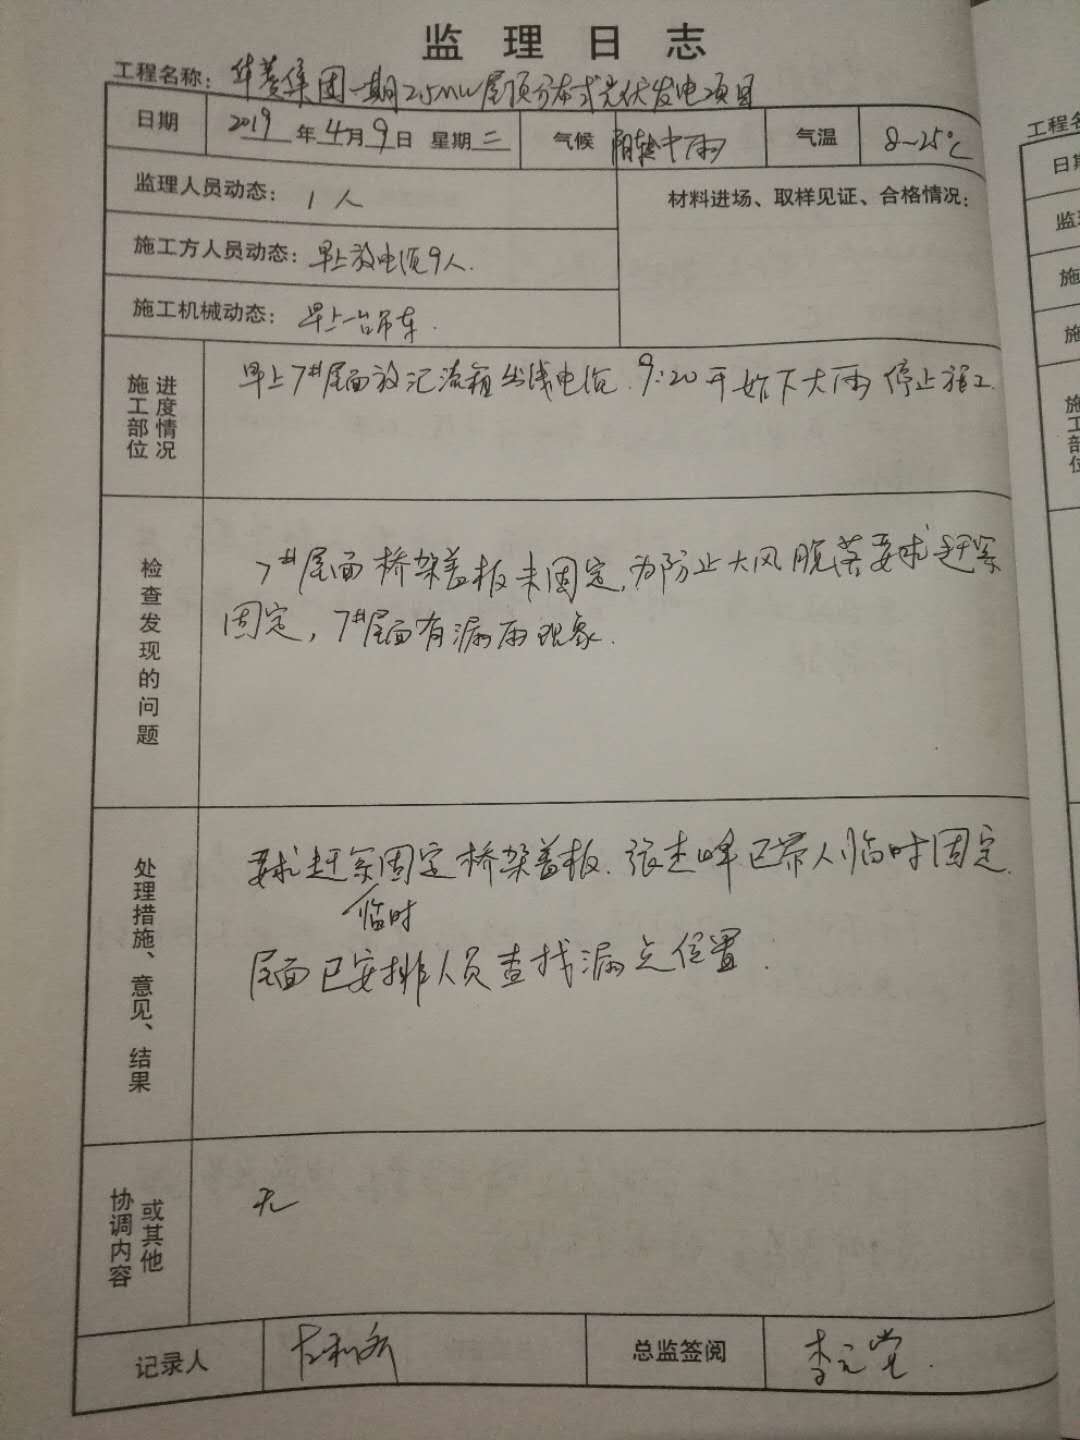 监理日志
工程名称：华菱集团一期25MW屋顶分布式光伏发电项目
日期 2019年4月9日 星期二 气候 阴转中雨 气温 8~25℃
监理人员动态：1人 材料进场、取样见证、合格情况：
施工方人员动态：早上放电缆9人.
施工机械动态：早上一台吊车.
施工部位进度情况
早上7#屋面放汇流箱出线电缆.9:20开始下大雨停止施工
检查发现的问题
7#屋面桥架盖板未固定,为防止大风脱落要求赶紧
固定,7#屋面有漏雨现象.
处理措施、意见、结果
要求赶紧固定桥架盖板.张杰峰已带人临时固定.
临时
屋面已安排人员查找漏点位置.
协调内容或其他
无
记录人 总监签阅 李元堂.
工程名
日期
监理
施工
施工
施工部位